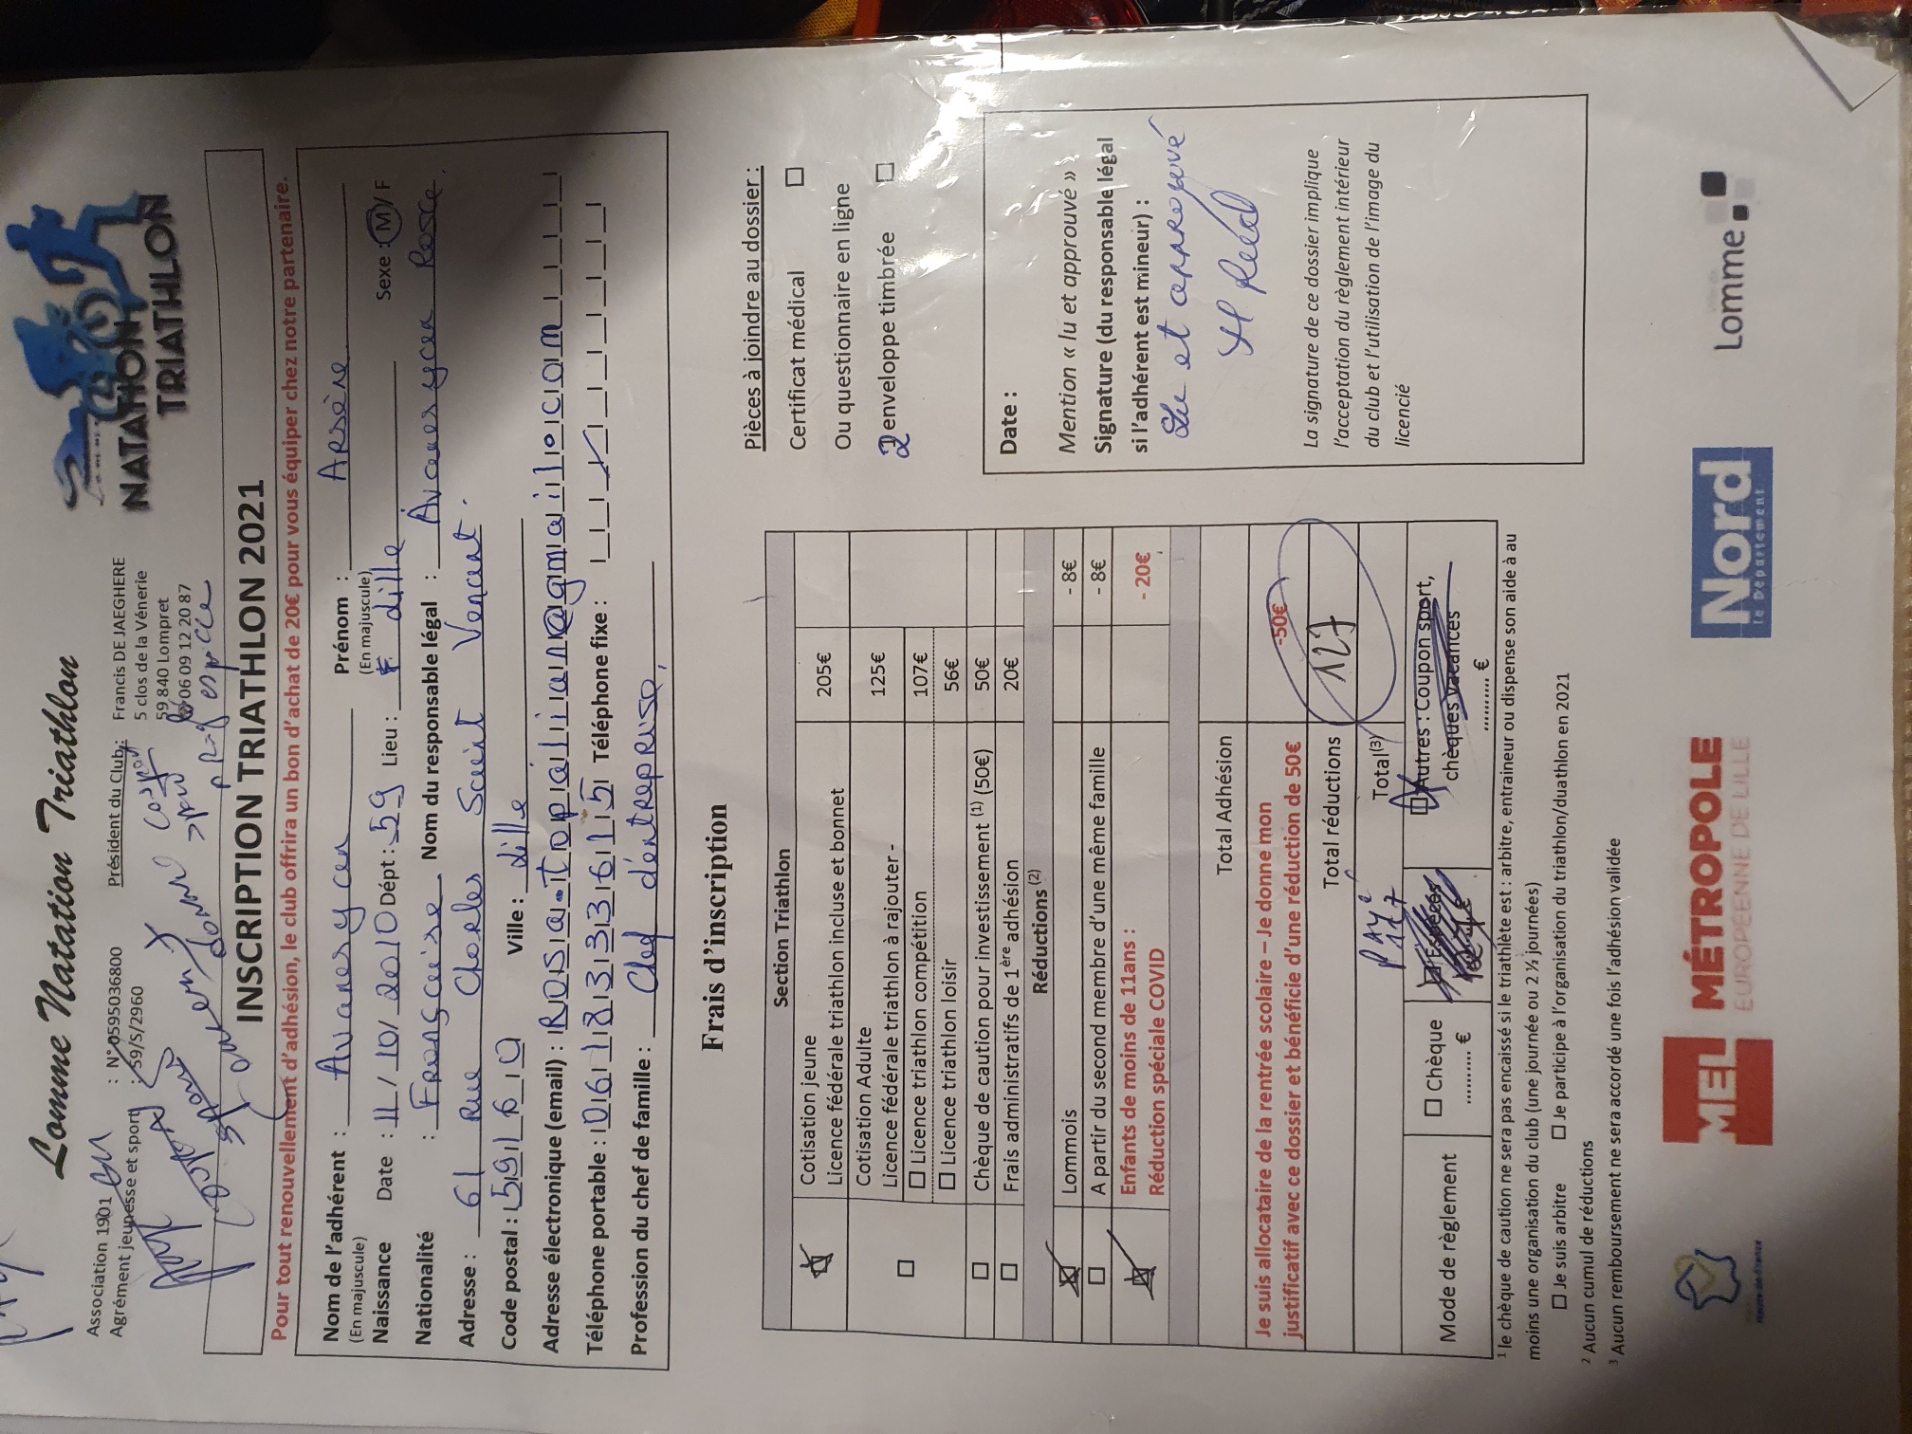 Lomme Natation Triathlon
Association 1901 : N° 0595036800
Agrément jeunesse et sport : 59/S/2960
Président du Club : Francis DE JAEGHERE
5 clos de la Vénerie
59 840 Lompret
06 09 12 20 87
NATATHON
TRIATHLON
espèce
INSCRIPTION TRIATHLON 2021
Pour tout renouvellement d'adhésion, le club offrira un bon d'achat de 20€ pour vous équiper chez notre partenaire.
Nom de l'adhérent : Avanesycen Prénom : ARSèNe
(En majuscule) (En majuscule)
Naissance Date : 11/10/2010 Dépt : 59 Lieu : Lille Sexe : M/ F
Nationalité : Française Nom du responsable légal : Avanesycen
Adresse : 61 Rue Charles Saint Venant.
Code postal : 59160 Ville : Lille
Adresse électronique (email) : @gmail.com
Téléphone portable : 0618333615 Téléphone fixe :
Profession du chef de famille : Chef d'entreprise,
Frais d'inscription
Section Triathlon
Cotisation jeune
Licence fédérale triathlon incluse et bonnet 205€
Cotisation Adulte
Licence fédérale triathlon à rajouter - 125€
☐ Licence triathlon compétition 107€
☐ Licence triathlon loisir 56€
☐ Chèque de caution pour investissement (1) (50€) 50€
☐ Frais administratifs de 1ère adhésion 20€
Réductions (2)
Lommois - 8€
☐ A partir du second membre d'une même famille - 8€
Enfants de moins de 11ans :
Réduction spéciale COVID - 20€
Total Adhésion
Je suis allocataire de la rentrée scolaire – Je donne mon
justificatif avec ce dossier et bénéficie d'une réduction de 50€ -50€
Total réductions 127
Total(3)
PAYÉ
127
Mode de règlement ☐ Chèque Espèces Autres : Coupon sport,
.......... € chèques vacances
.......... €
Pièces à joindre au dossier :
Certificat médical ☐
Ou questionnaire en ligne
2 enveloppe timbrée ☐
Date :
Mention « lu et approuvé »
Signature (du responsable légal
si l'adhérent est mineur) :
Lu et approuvé
La signature de ce dossier implique
l'acceptation du règlement intérieur
du club et l'utilisation de l'image du
licencié
1 le chèque de caution ne sera pas encaissé si le triathlète est : arbitre, entraineur ou dispense son aide à au
moins une organisation du club (une journée ou 2 ½ journées)
☐ Je suis arbitre ☐ Je participe à l'organisation du triathlon/duathlon en 2021
2 Aucun cumul de réductions
3 Aucun remboursement ne sera accordé une fois l'adhésion validée
MEL MÉTROPOLE
EUROPÉENNE DE LILLE
Nord
le Département
Lomme